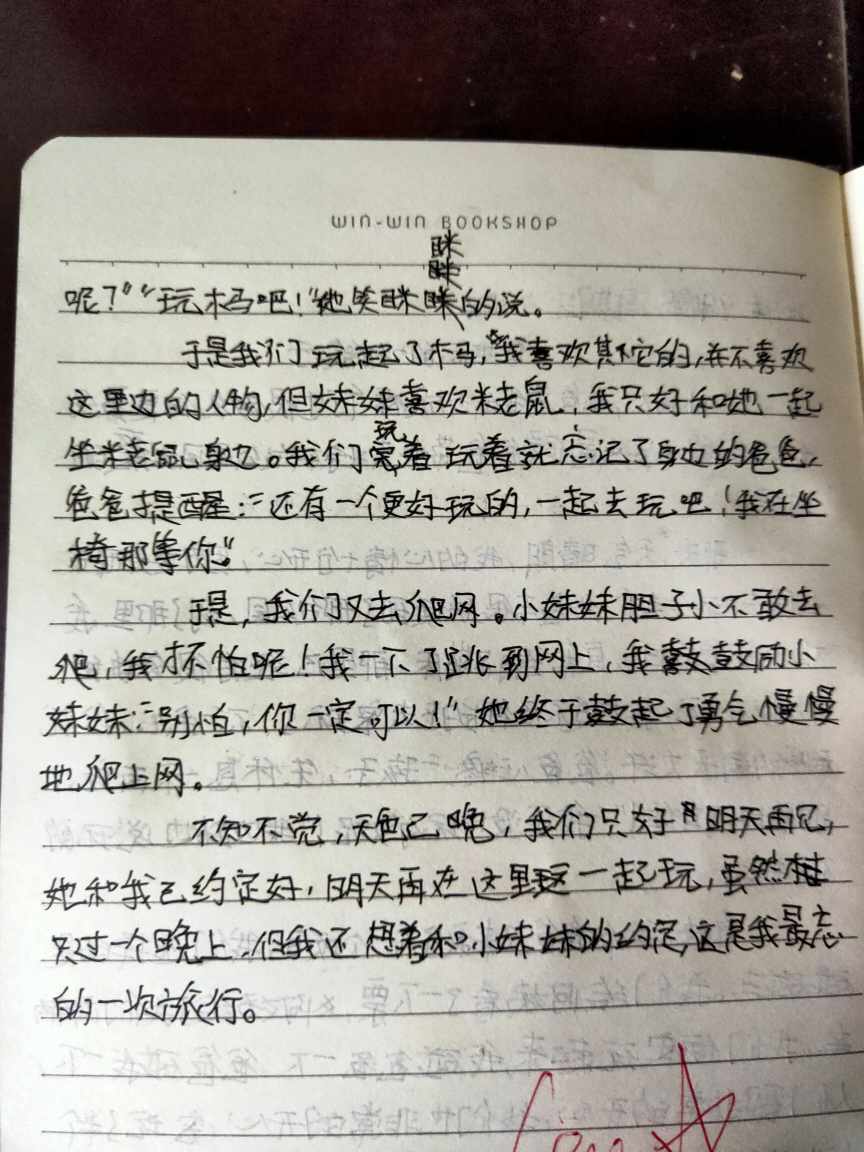 WIN-WIN BOOKSHOP
眯
眯
呢？”“玩木马吧！”她笑眯眯的说。
于是我们玩起了木马，我喜欢其它的，并不喜欢
这里边的人物，但妹妹喜欢米老鼠，我只好和她一起
坐米老鼠身边。我们玩着玩着就忘记了身边的爸爸，
爸爸提醒：“还有一个更好玩的，一起去玩吧！我在坐
椅那等你”
于是，我们又去爬网。小妹妹胆子小不敢去
爬，我才不怕呢！我一下子跳到网上，我鼓鼓励小
妹妹：“别怕，你一定可以！”她终于鼓起了勇气慢慢
地爬上网。
不知不觉，天色已晚，我们只好明天再见，
她和我已约定好，明天再在这里一起玩，虽然
只过一个晚上，但我还想着和小妹妹的约定，这是我最忘
的一次旅行。